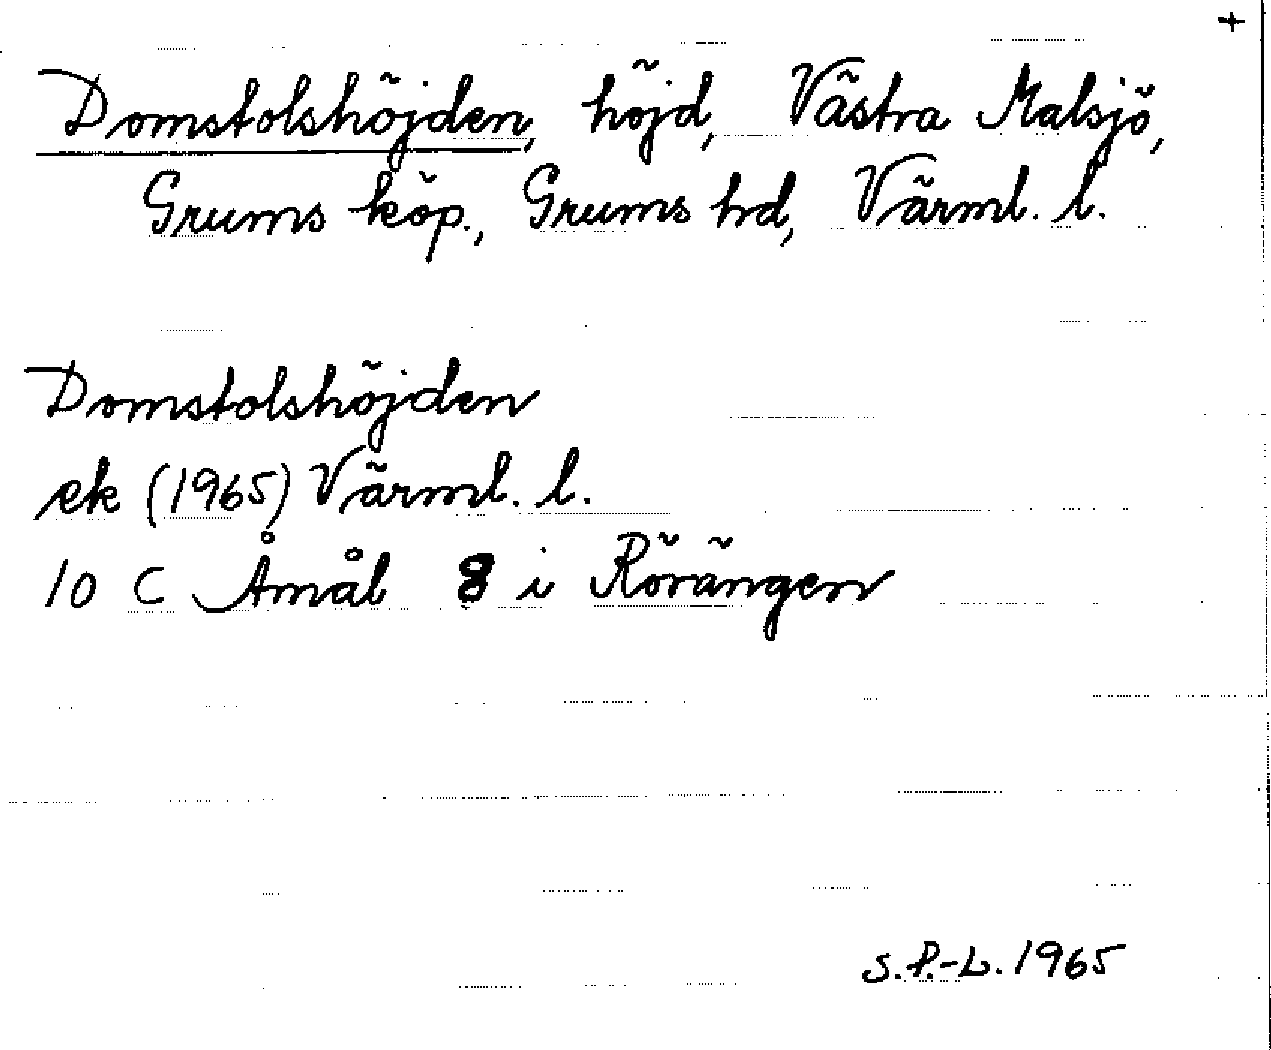 +
Domstolshöjden, höjd, Västra Malsjö,
Grums köp., Grums hd, Värml. l.
Domstolshöjden
ek (1965) Värml. l.
10 C Åmål 8 i Rörängen
S.P.-L. 1965